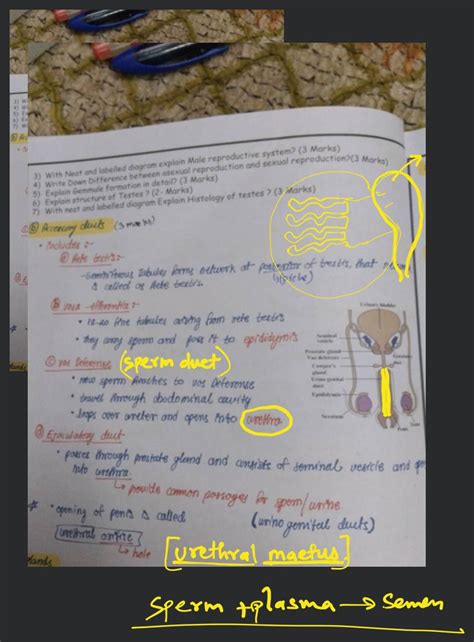 3) With Neat and labelled diagram explain Male reproductive system? (3 Marks)
4) Write Down Difference between asexual reproduction and sexual reproduction? (3 Marks)
5) Explain Gemmule formation in detail? (3 Marks)
6) Explain structure of Testes ? (2- Marks)
7) With neat and labelled diagram Explain Histology of testes ? (3 Marks)
⑥ Accessory ducts (3 marks)
• Includes :-
ⓐ Rete testis :-
- Seminiferous tubules forms network at posterior of testis, that
is called as Rete testis.
ⓑ vasa - efferentia :-
• 12-20 fine tubules arising from rete testis
• they carry sperm and pass it to epididymis
ⓒ vas Deference (sperm duct)
• now sperm reaches to vas deference
• travel through abdominal cavity
• loops over ureter and opens into urethra
ⓓ Ejaculatory duct
• passes through prostate gland and consists of seminal vesicle and
into urethra
↳ provide common passages for sperm/urine
(urinogenital ducts)
* opening of penis is called
urethral orifice
↳ hole
[urethral maetus]
Urinary bladder
Seminal vesicle
Prostate gland
Vas deferens
Cowper's gland
Urino genital duct
Epididymis
Scrotum
Testis
Penis
sperm + plasma → Semen